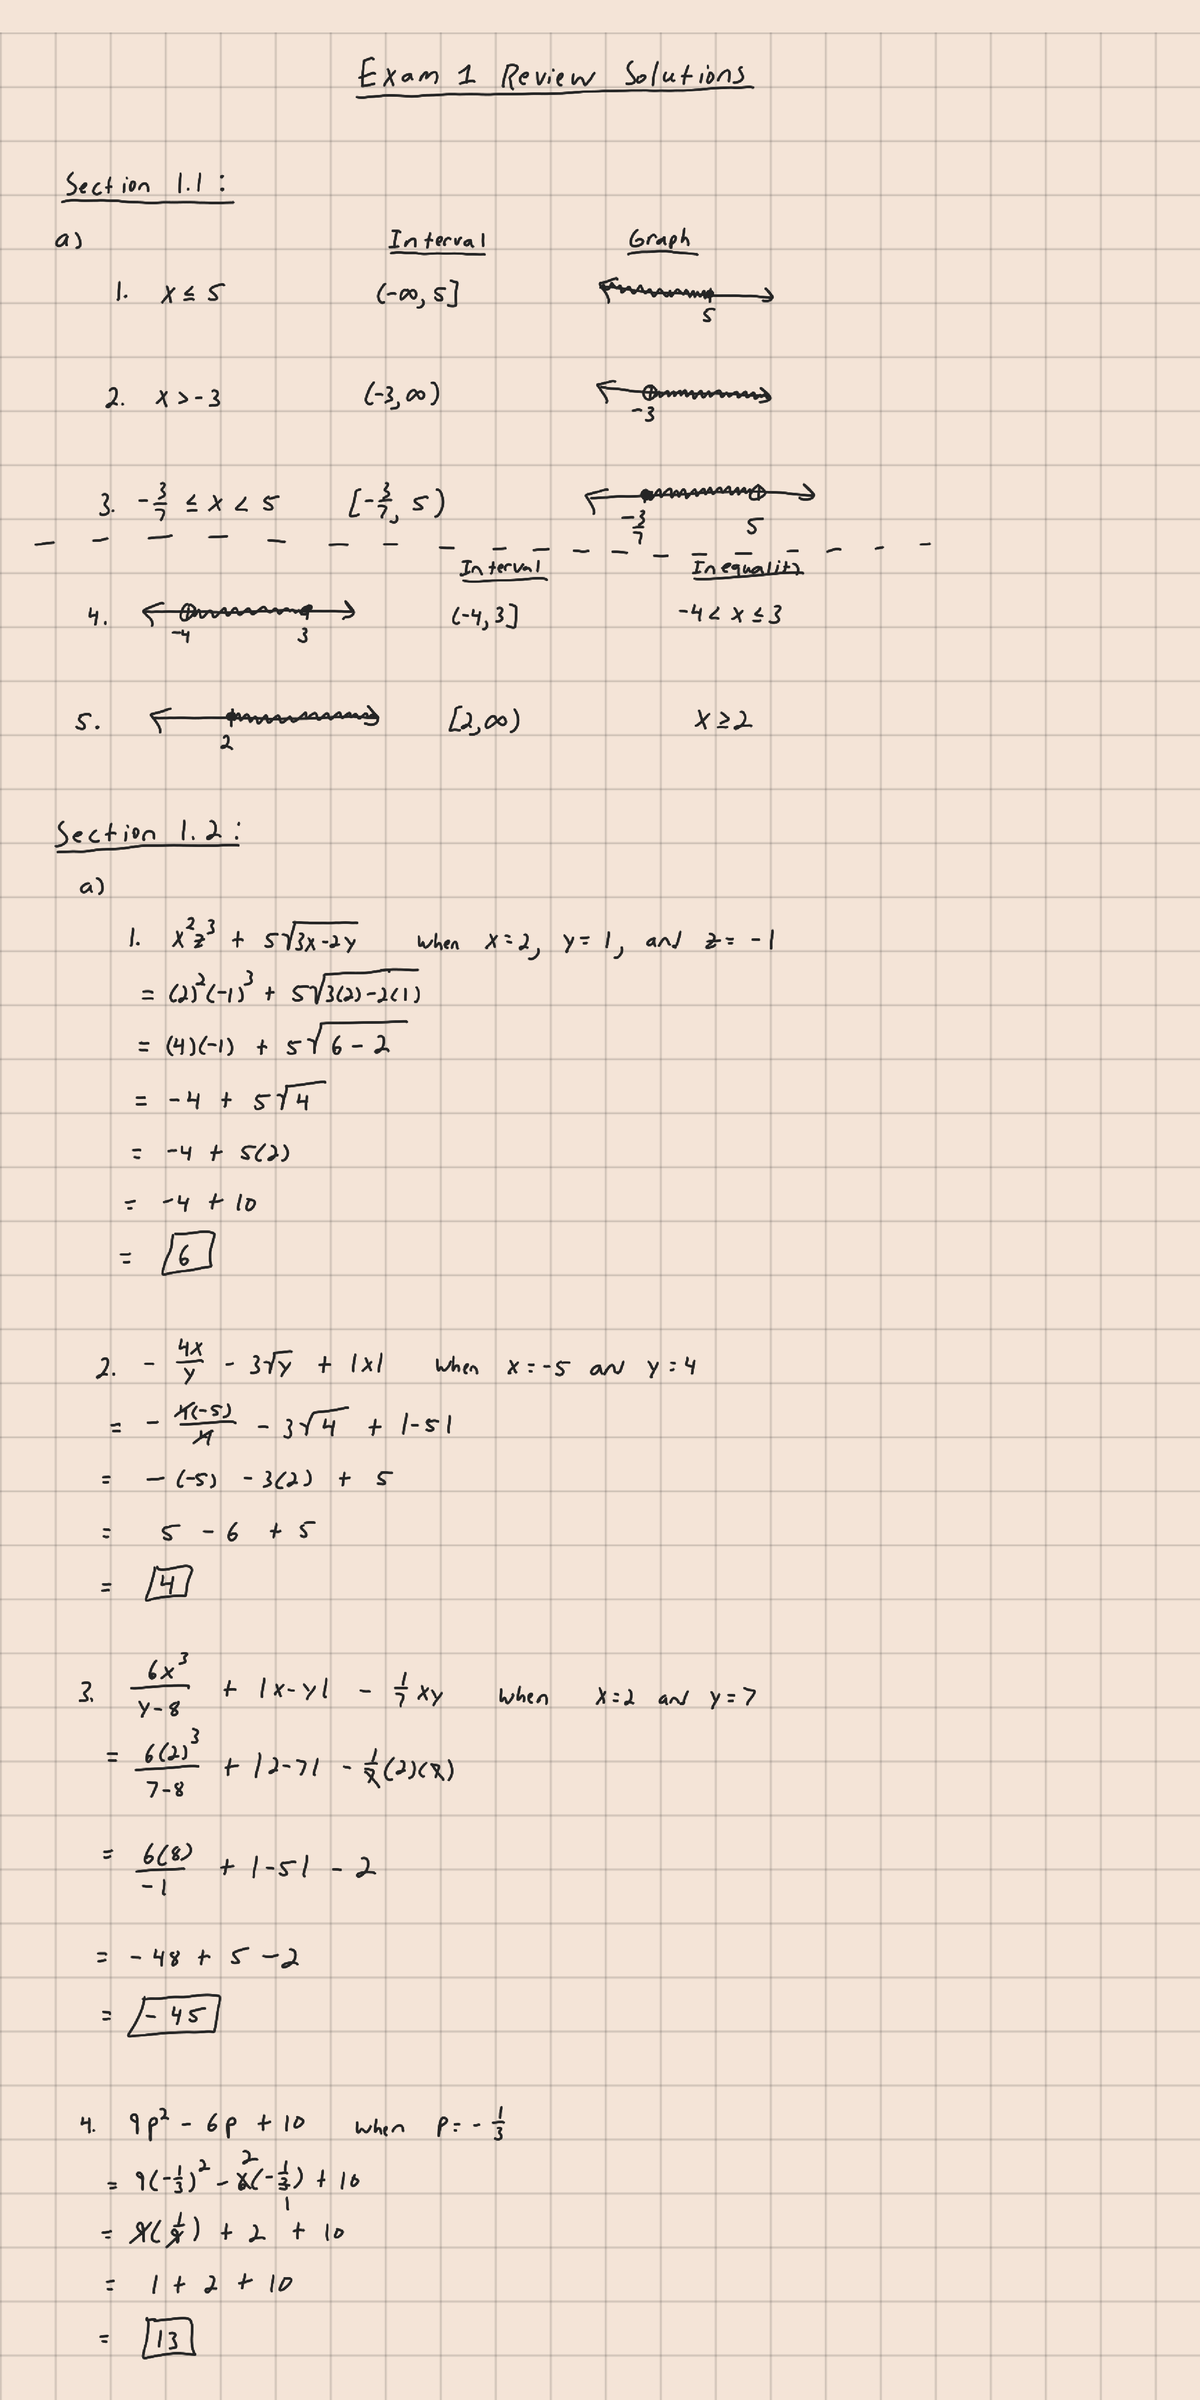 Exam 1 Review Solutions
Section 1.1:
a) Interval Graph
1. x ≤ 5 (-∞, 5]
5
2. x > -3 (-3, ∞)
-3
3. -3/7 ≤ x < 5 [-3/7, 5)
-3/7 5
Interval Inequality
4. (-4, 3] -4 < x ≤ 3
-4 3
5. [2, ∞) x ≥ 2
2
Section 1.2:
a)
1. x²z³ + 5√(3x-2y) when x = 2, y = 1, and z = -1
= (2)²(-1)³ + 5√(3(2)-2(1))
= (4)(-1) + 5√(6-2)
= -4 + 5√4
= -4 + 5(2)
= -4 + 10
= 6
2. - 4x/y - 3√y + |x| when x = -5 and y = 4
= - 4(-5)/4 - 3√4 + |-5|
= -(-5) - 3(2) + 5
= 5 - 6 + 5
= 4
3. 6x³/(y-8) + |x-y| - 1/7 xy when x = 2 and y = 7
= 6(2)³/(7-8) + |2-7| - 1/7(2)(7)
= 6(8)/-1 + |-5| - 2
= -48 + 5 - 2
= -45
4. 9p² - 6p + 10 when p = -1/3
2
= 9(-1/3)² - 6(-1/3) + 10
1
= 9(1/9) + 2 + 10
= 1 + 2 + 10
= 13